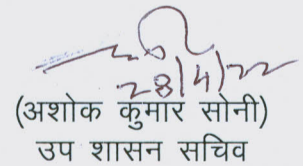 28/4/22
(अशोक कुमार सोनी)
उप शासन सचिव